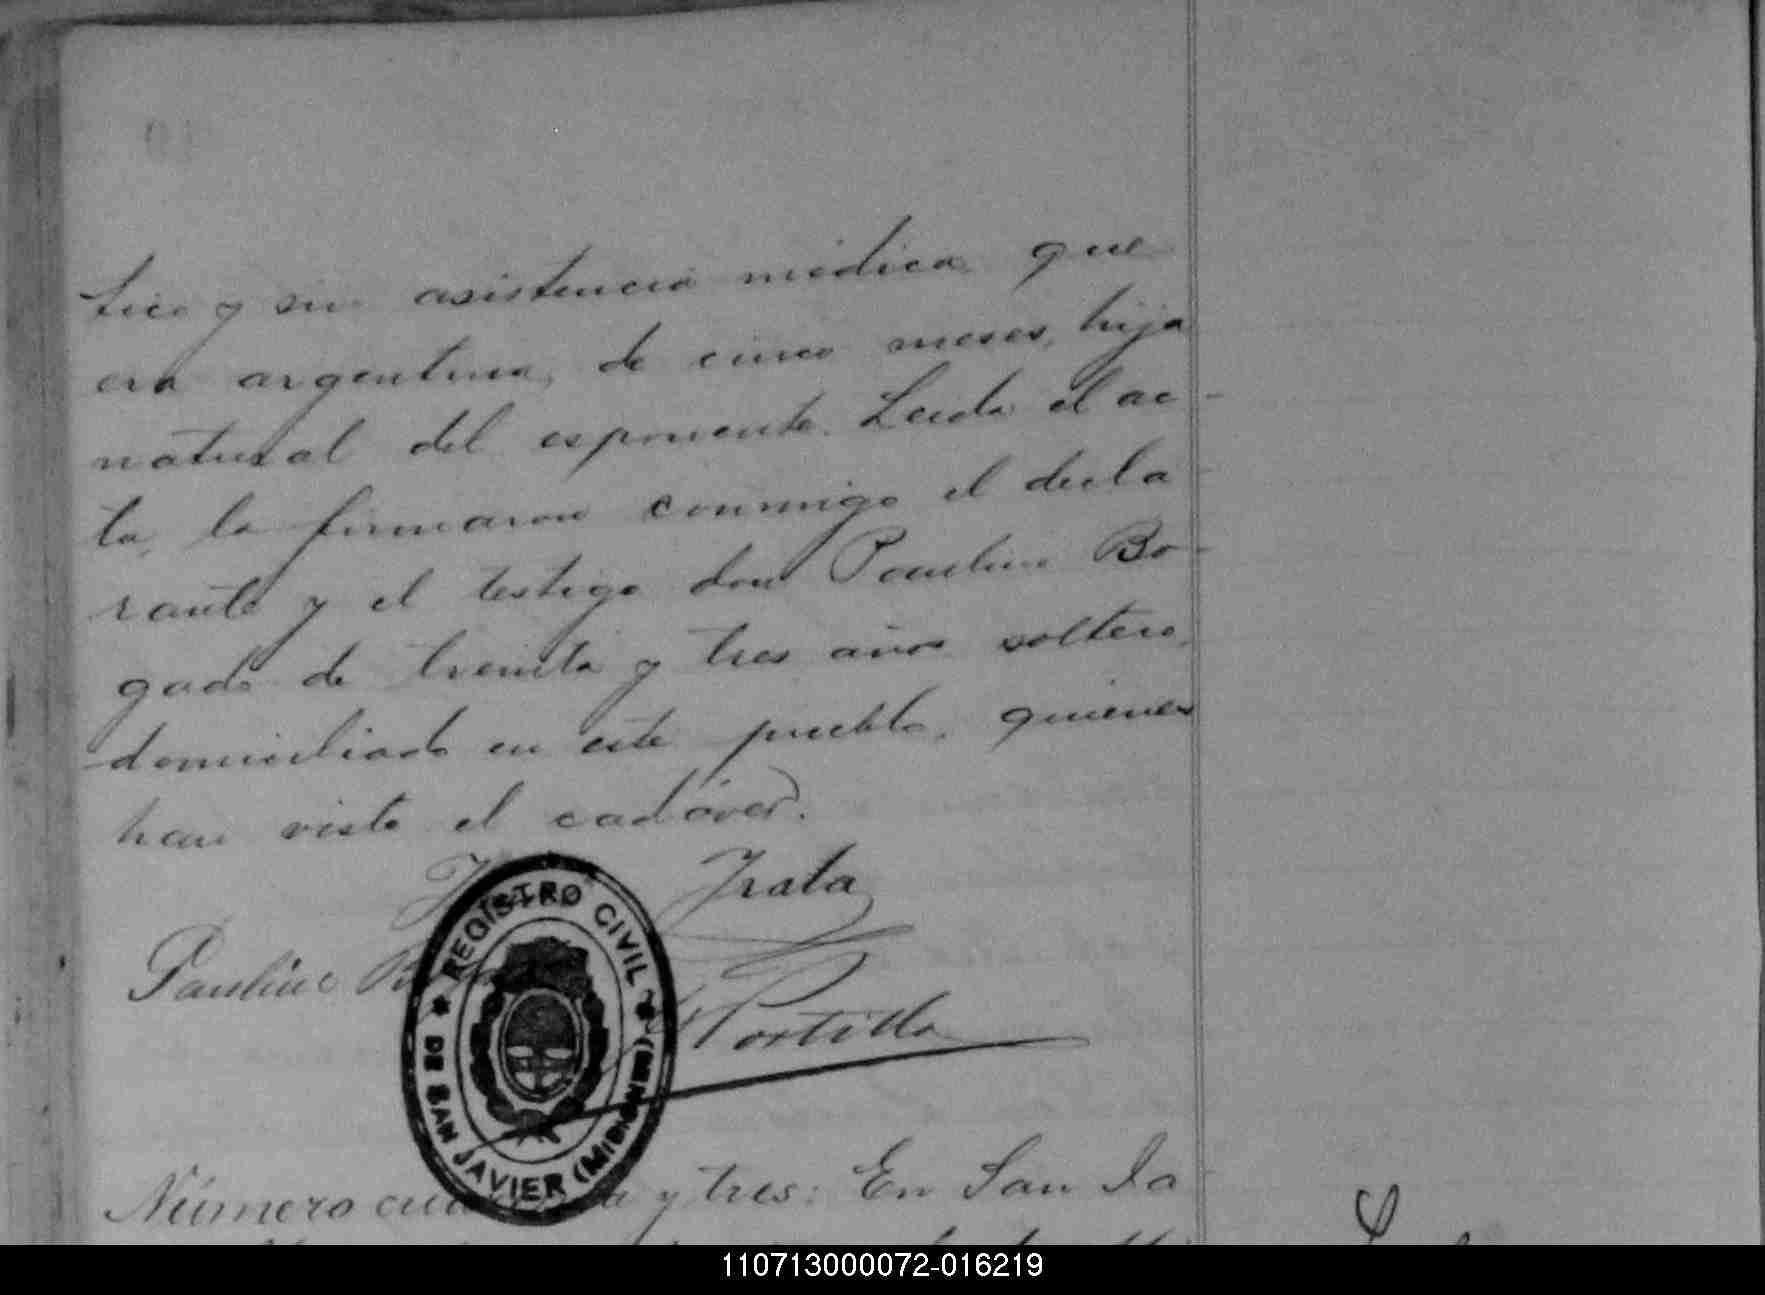 tico y sin asistencia médica que
era argentina, de cinco meses, hija
natural del esponente. Leida el ac-
ta, la firmaron conmigo el decla-
rante y el testigo don Paulino Bo-
gado de treinta y tres años soltero,
domiciliado en este pueblo, quienes
han visto el cadáver.
Prata
Paulino
Portillo
REGISTRO CIVIL
DE SAN JAVIER (MISIONES)
Número y tres: En San Ja-
110713000072-016219